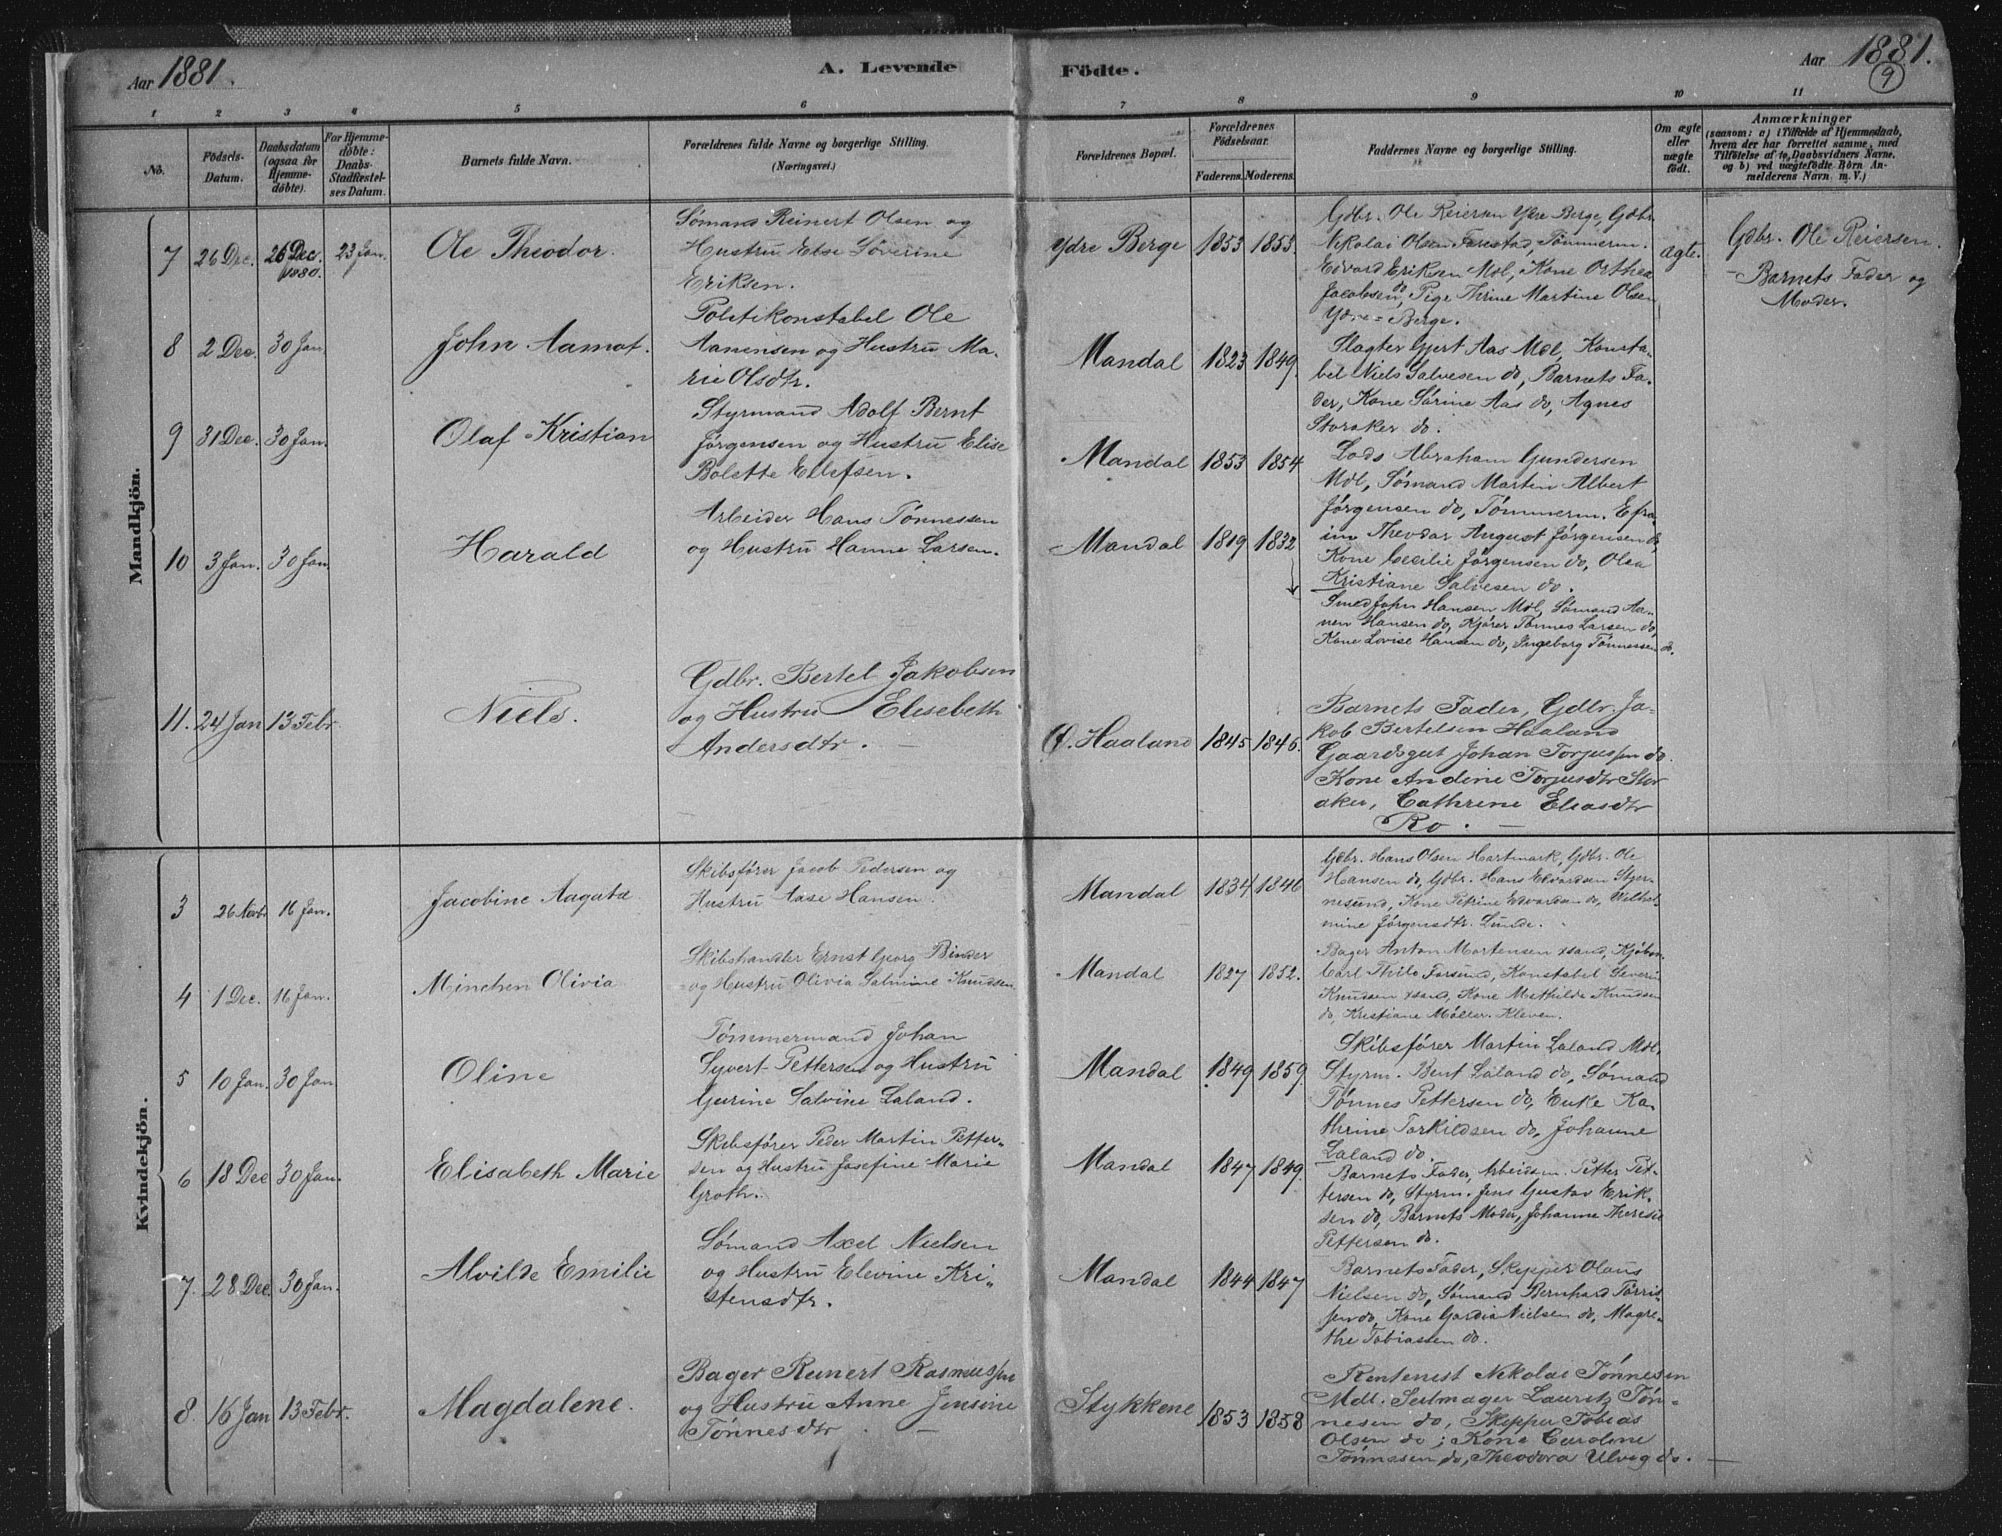 Aar 1881. A. Levende Födte. Aar 1881.
9
1 2 3 4 5 6 7 8 9 10 11
No.
Födsels-
Datum.
Daabsdatum
(ogsaa for
Hjemme-
döbte).
For Hjemme-
döbte:
Daabs-
Stadfæstel-
ses Datum.
Barnets fulde Navn.
Forældrenes fulde Navne og borgerlige Stilling.
(Næringsvei.)
Forældrenes Bopæl.
Forældrenes
Födselsaar.
Faderens. Moderens.
Faddernes Navne og borgerlige Stilling.
Om ægte
eller
uægte
født.
Anmærkninger
(saasom: a) i Tilfælde af Hjemmedaab,
hvem der har forrettet samme, med
Tilföielse af to Daabsvidners Navne,
og b) ved uægtefödte Börn An-
melderens Navn m. V.)
Mandkjön.
7 26 Dec. 26 Dec. 1880. 23 Jan. Ole Theodor.
Sømand Reinert Olsen og
Hustru Else Søverine
Eriksen.
Ydre Berge 1853 1853.
Gdbr. Ole Reiersen Ydre Berge, Gdbr.
Nikolai Olsen Farestad, Tømmerm.
Edvard Eriksen Mdl, Kone Orthea
Jacobsen do, Pige Thrine Martine Olsen
Ydre-Berge.
ægte.
Gdbr. Ole Reiersen.
- Barnets Fader og
Moder.
8 2 Dec. 30 Jan. John Aamot.
Politikonstabel Ole
Aanensen og Hustru Ma-
rie Olsdtr.
Mandal 1823 1849.
Slagter Gjert Aas Mdl, Konsta-
bel Niels Salvesen do, Barnets Fa-
der, Kone Sørine Aas do, Agnes
Storaker do.
9 31 Dec. 30 Jan. Olaf Kristian
Styrmand Adolf Bernt
Jørgensen og Hustru Elise
Bolette Ellefsen.
Mandal 1853 1854
Lods Abraham Gundersen
Mdl, Sømand Martin Albert
Jørgensen do, Tømmerm. Efra-
im Theodor August Jørgensen do,
Kone Cecilie Jørgensen do, Olea
Kristiane Salvesen do.
10 3 Jan. 30 Jan. Harald
Arbeider Hans Tønnessen
og Hustru Hanne Larsen.
Mandal 1819 1832
Smed John Hansen Mdl, Sømand Aa-
nen Hansen do, Kjører Tønnes Larsen do,
Kone Lovise Hansen do, Ingeborg Tønnessen do.
11. 24 Jan 13 Febr. Niels.
Gdbr. Bertel Jakobsen
og Hustru Elisebeth
Andersdtr. -
Ø. Haaland 1845 1846.
Barnets Fader, Gdbr. Ja-
kob Bertelsen Haaland
Gaardsgut Johan Torjussen do.
Kone Andine Torjusdtr Stor
aker, Cathrine Eliasdtr
Ro. -
Kvindekjön.
3 26 Novbr 16 Jan. Jacobine Aagate
Skibsfører Jacob Pedersen og
Hustru Aase Hansen.
Mandal 1834 1846
Gdbr. Hans Olsen Hartmark, Gdbr. Ole
Hansen do, Gdbr. Hans Edvardsen Skjer-
nesund, Kone Petrine Edvardsen do, Wilhel-
mine Jørgensdtr. Lunde.
4 1 Dec. 16 Jan. Minchen Olivia
Skibshandler Ernst Georg Binder
og Hustru Olivia Salmine Knudsen
Mandal 1827 1852.
Bager Anton Mortensen Xsand, Kjøbm.
Carl Thilo Farsund, Konstabel Severin
Knudsen Xsand, Kone Mathilde Knudsen
do, Kristiane Møller. Kleven.
5 10 Jan. 30 Jan. Oline
Tømmermand Johan
Syvert Pettersen og Hustru
Gurine Salvine Laland.
Mandal 1849 1859.
Skibsfører Martin Laland Mdl,
Styrm. Bent Laland do, Sømand
Tønnes Pettersen do, Enke Ka-
thrine Torkildsen do, Johanne
Laland do.
6 18 Dec 30 Jan. Elisabeth Marie
Skibsfører Peder Martin Petter-
sen og Hustru Josefine Marie
Groth.
Mandal 1847 1849.
Barnets Fader, Arbeidsm. Petter Pet-
tersen do, Styrm. Jens Gustav Erik-
sen do, Barnets Moder, Johanne Therese
Pettersen do.
7. 28 Dec. 30 Jan. Alvilde Emilie
Sømand Axel Nielsen
og Hustru Elevine Kri-
stensdtr.
Mandal 1844 1847
Barnets Fader, Skipper Olaus
Nielsen do, Sømand Bernhard Tørris-
sen do, Kone Gardia Nielsen do, Magre-
the Tobiassen do.
8. 16 Jan 13 Febr. Magdalene.
Bager Reinert Rasmussen
og Hustru Anne Jensine
Tønnesdtr. -
Stykkene 1853 1858
Rentenist Nikolai Tønnesen
Mdl. Seilmager Lauritz Tøn-
nesen do, Skipper Tobias
Olsen do; Kone Caroline
Tønnesen do, Theodora Ulveg do. -